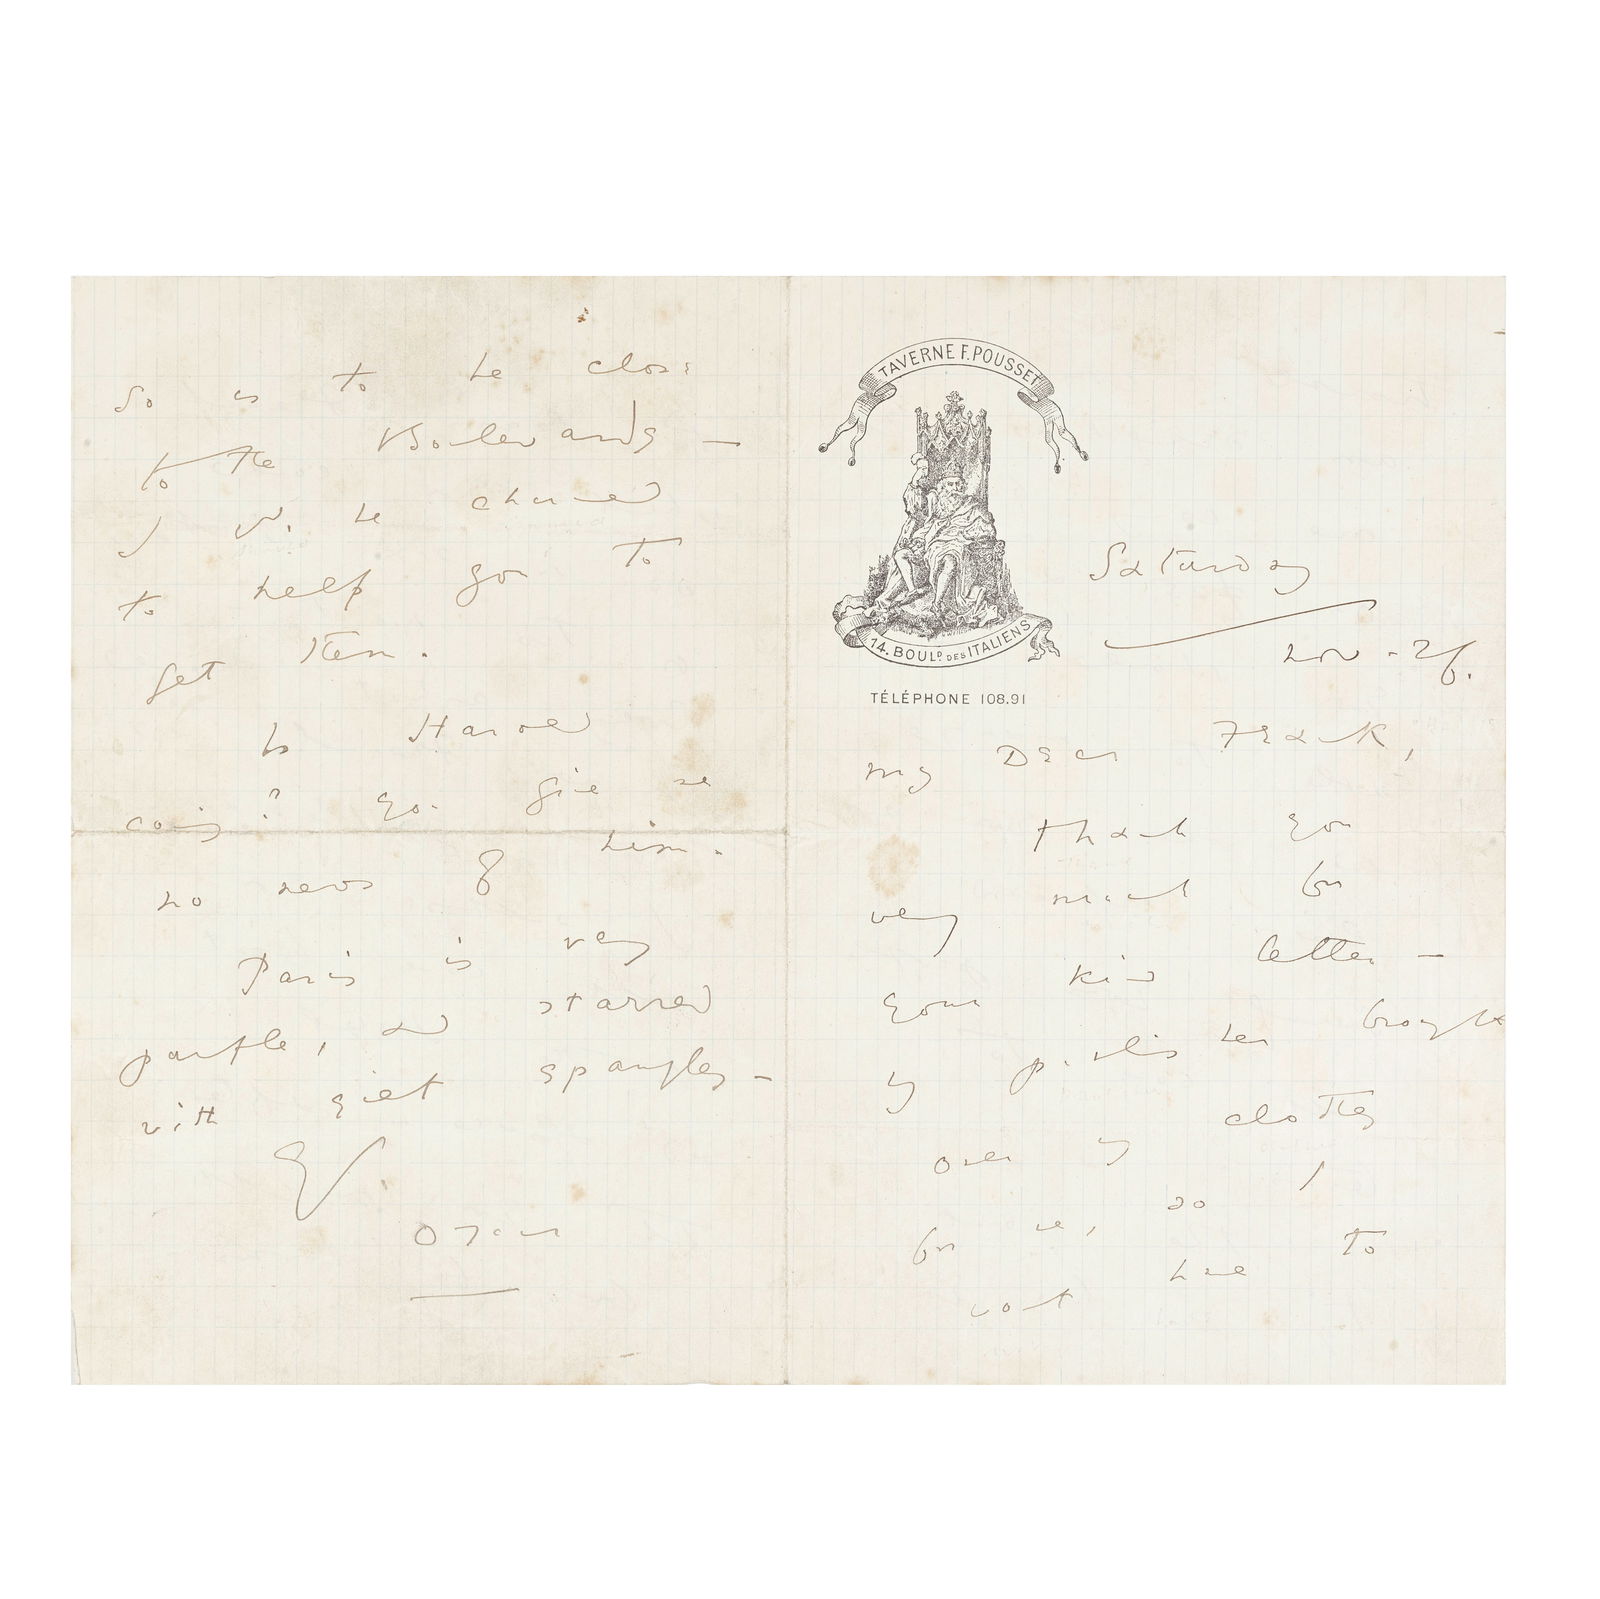 TAVERNE F. POUSSET
14. BOULD DES ITALIENS
TÉLÉPHONE 108.91
Saturday
Nov - 26.
My Dear Frank,
Thank you
very much for
your kind letter —
my publisher brought
over my clothes
for me, so I
wont have to
so as to be close
to the Boulevards —
I wd. be charmed
to help you to
get them.
Is Harold
coming? You give me
no news of him.
Paris is very
purple, and starred
with gilt spangles —
Ev.
Oscar